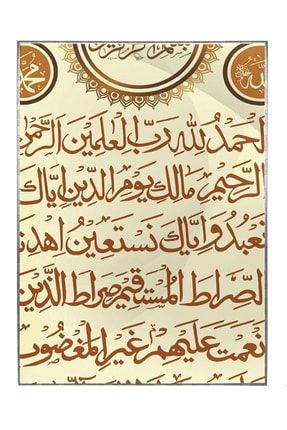 محمد
بسم الله الرحمن
الله
لحمد لله رب العالمين الرحمن
الرحيم مالك يوم الدين اياك
نعبد و اياك نستعين اهدنا
لصراط المستقيم صراط الذين
نعمت عليهم غير المغضوب